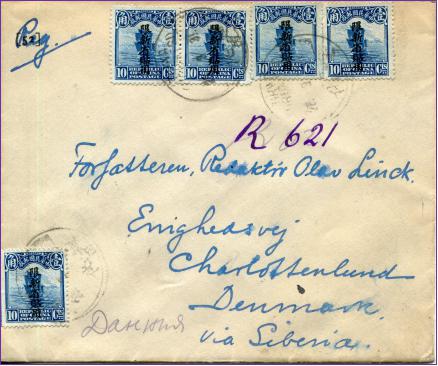 [52]
Reg.
10 Cts REPUBLIC OF CHINA POSTAGE
10 Cts REPUBLIC OF CHINA POSTAGE
10 Cts REPUBLIC OF CHINA POSTAGE
10 Cts REPUBLIC OF CHINA POSTAGE
R 621
Forfatteren, Redaktör Olav Linck.
Enighedsvej
Charlottenlund
Denmark,
via Siberia.
Дания
10 Cts REPUBLIC OF CHINA POSTAGE